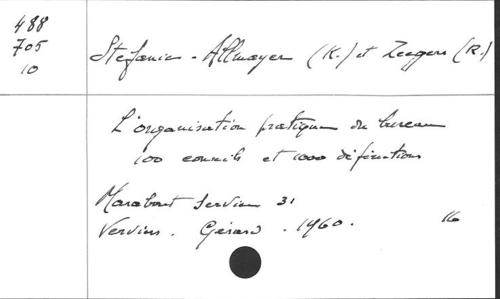 488
705
10
Stefanic-Allmayer (K.) et Zeegers (R.)
L'organisation pratique du bureau
100 conseils et 1000 définitions
Marabout Service 31
Verviers. Gérard. 1960. 16